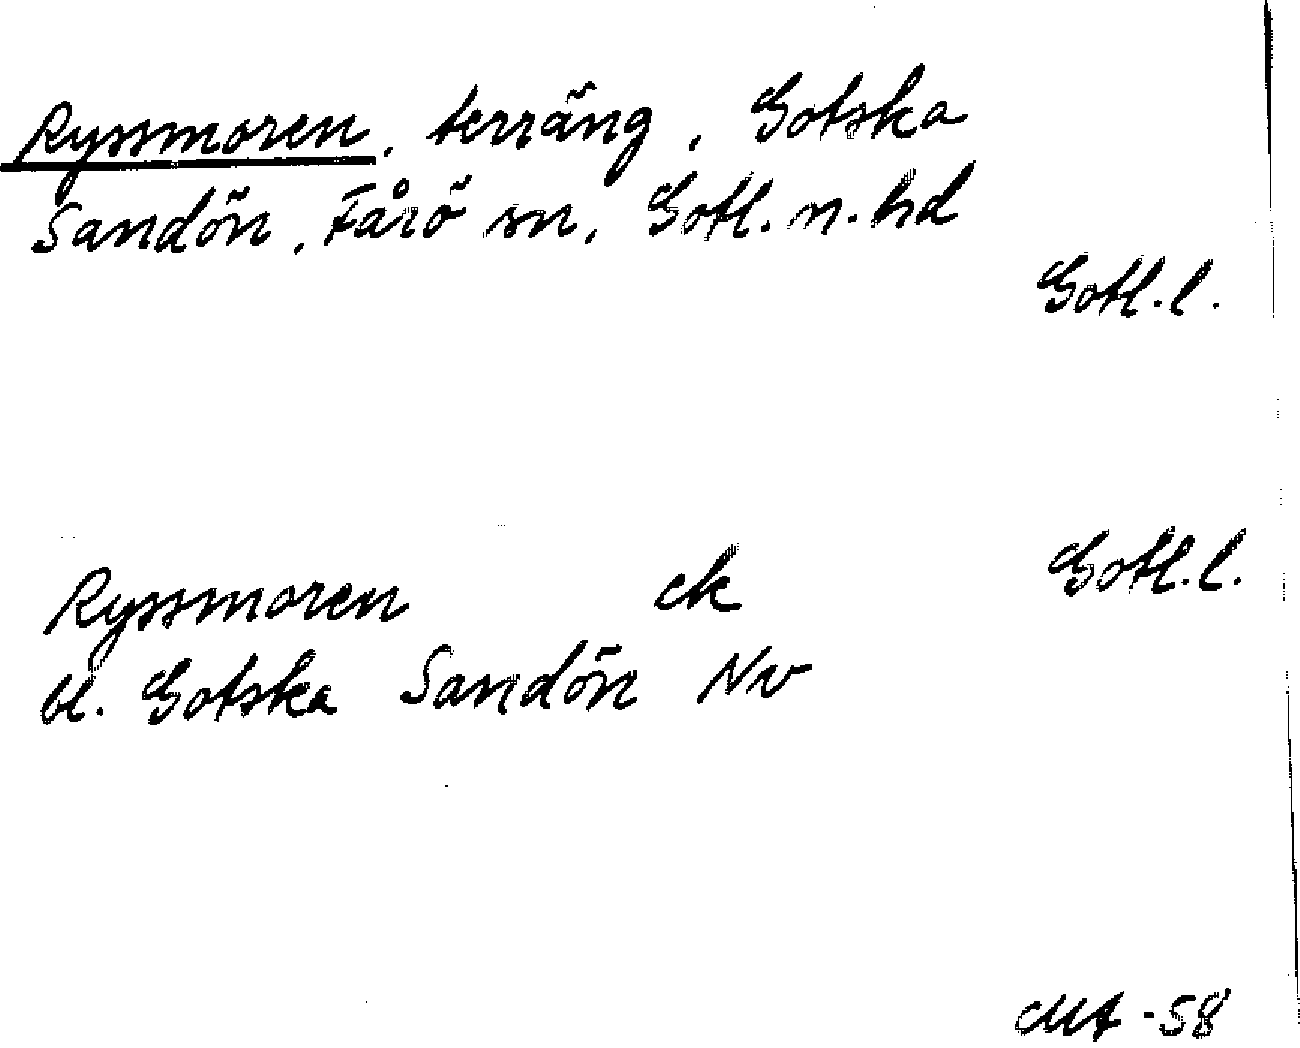 Ryssmoren, terräng, Gotska
Sandön, Fårö sn, Gotl. n. hd
Gotl. l.
Ryssmoren ek Gotl. l.
bl. Gotska Sandön NV
-58